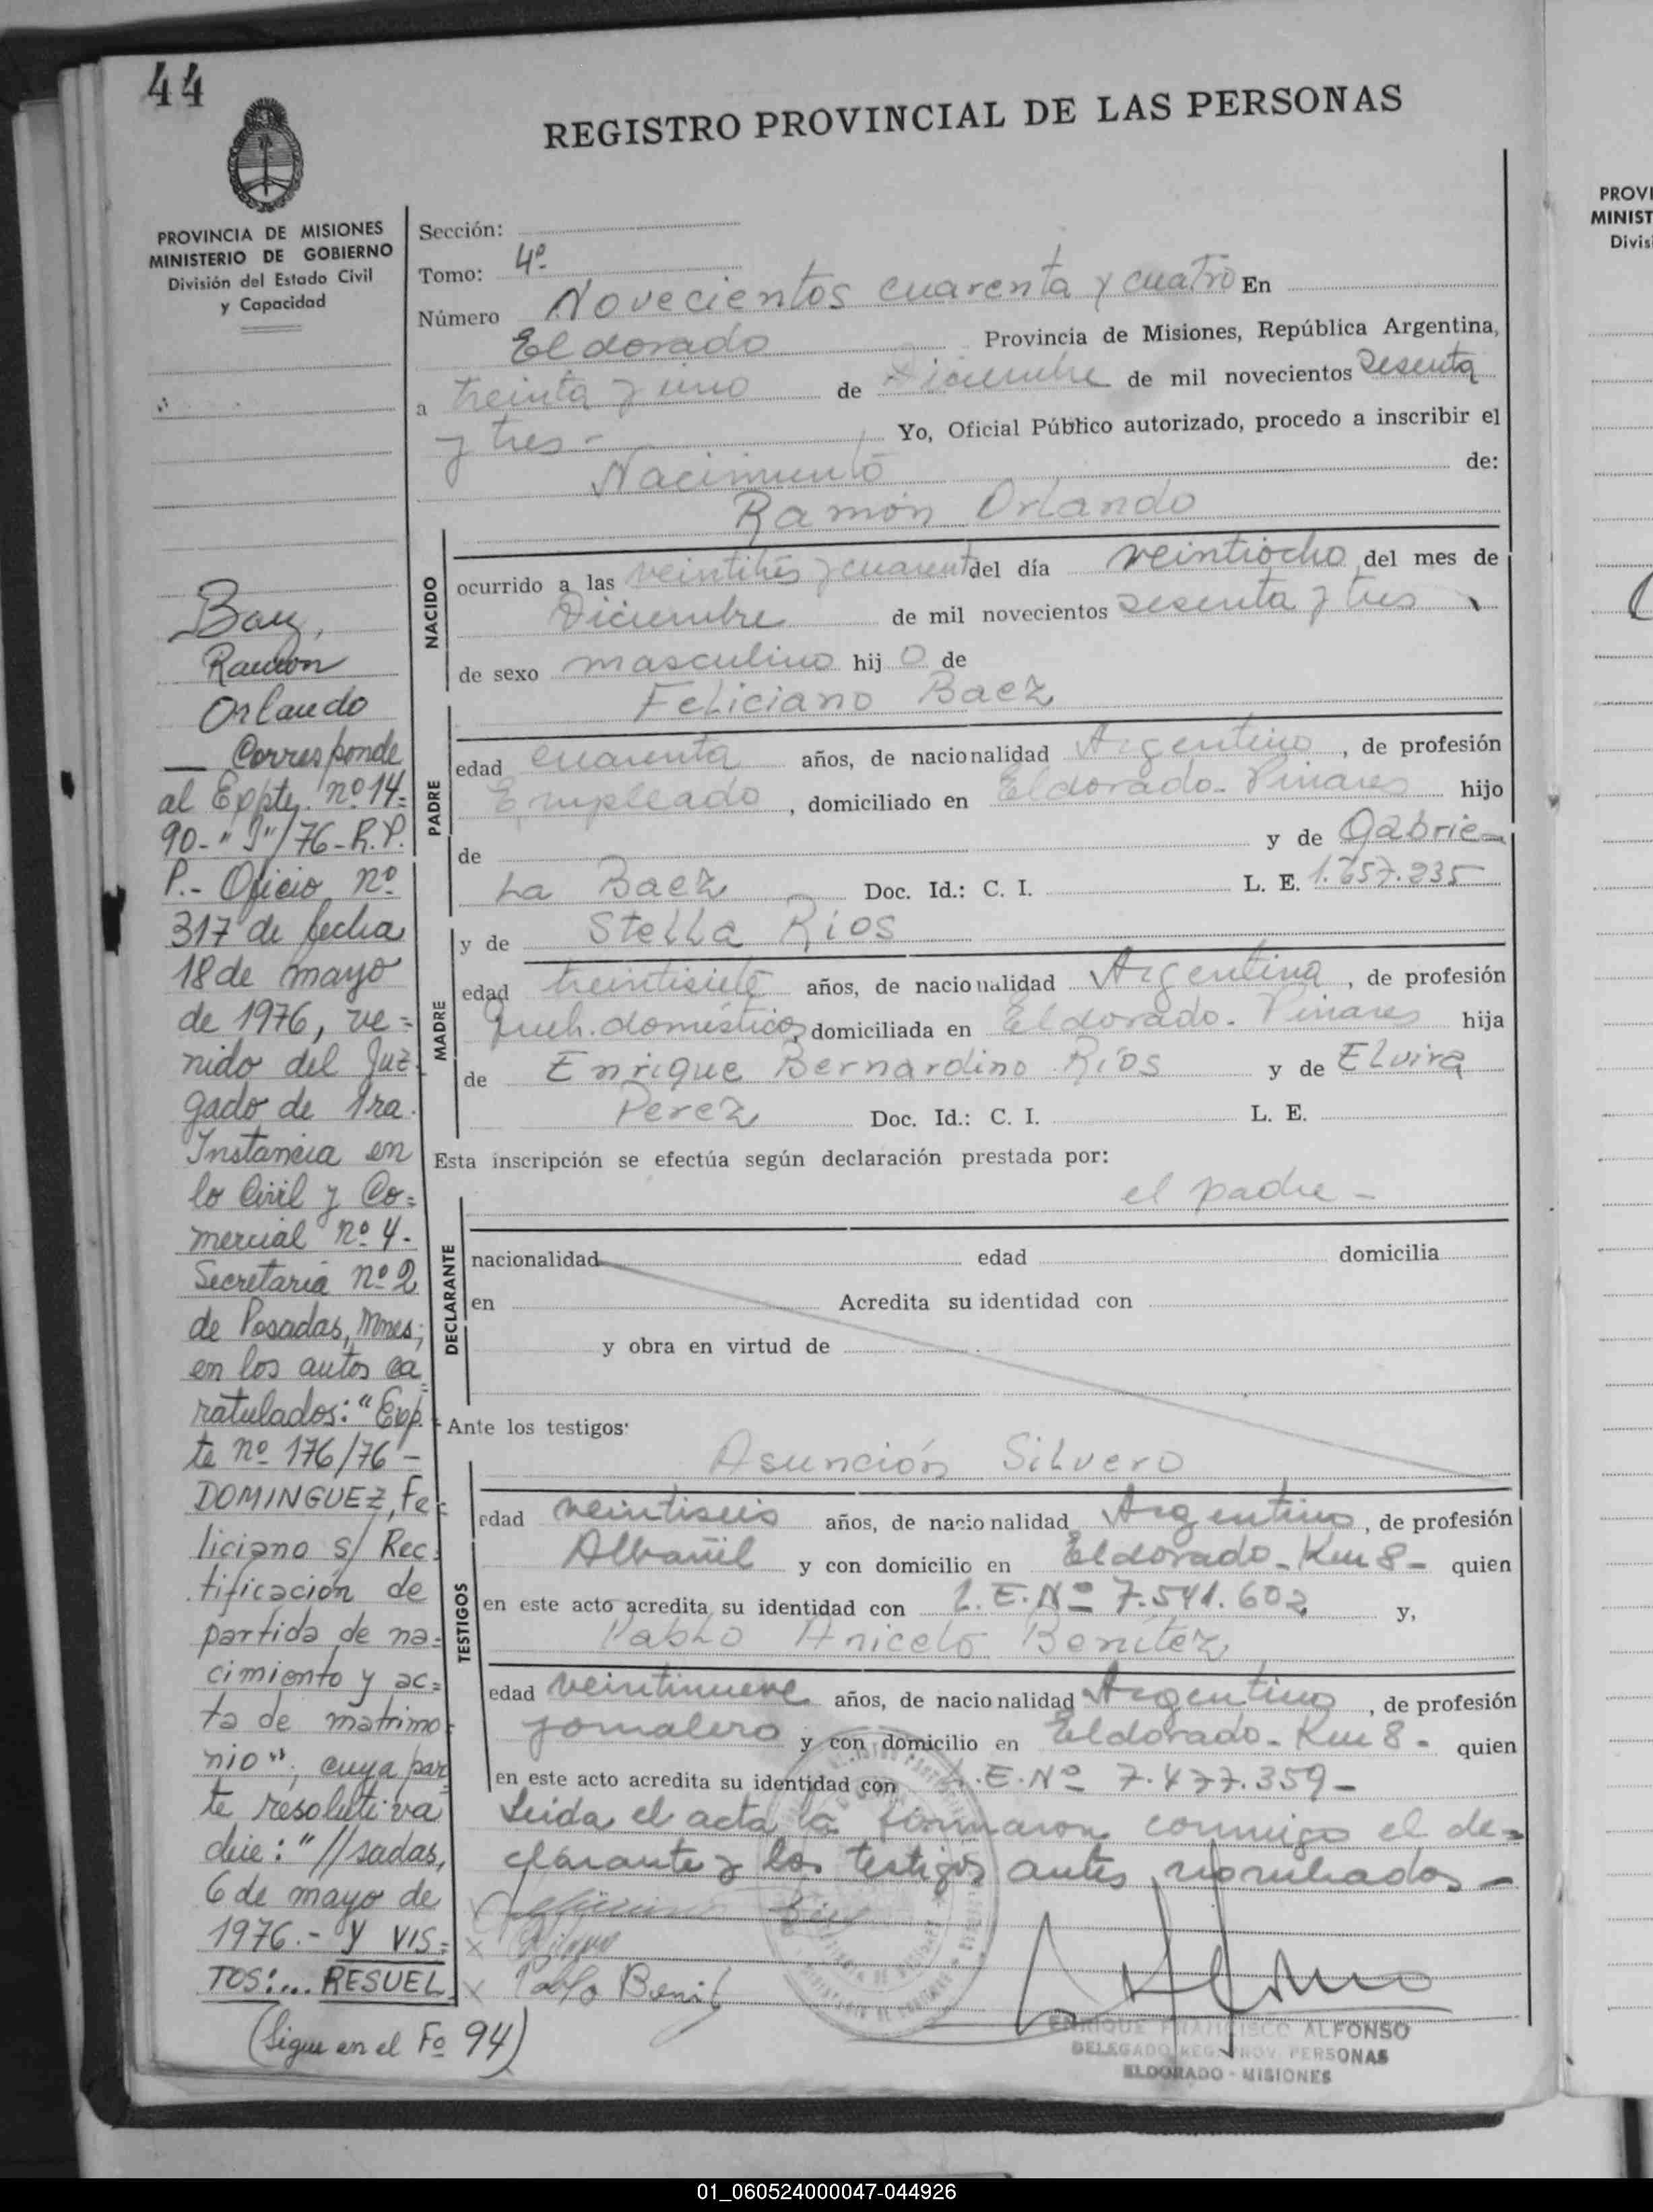 44
REGISTRO PROVINCIAL DE LAS PERSONAS
PROVINCIA DE MISIONES
MINISTERIO DE GOBIERNO
División del Estado Civil
y Capacidad
Baez,
Ramon
Orlando
Corresponde
al Expte. nº 14=
90-"J"/76-R.P.
P.- Oficio nº
317 de fecha
18 de mayo
de 1976, ve=
nido del Juz
gado de 1ra.
Instancia en
lo Civil y Co=
mercial nº 4.
Secretaria nº 2
de Posadas, Mnes;
en los autos ca
ratulados: "Exp.
te nº 176/76 -
DOMINGUEZ, Fe
liciano s/ Rec
tificación de
partida de na=
cimiento y ac=
ta de matrimo
nio"; cuya par
te resolutiva
dice: "//sadas,
6 de mayo de
1976.- Y VIS=
TOS:... RESUEL
(Sigue en el Fº 94)
Sección:
Tomo: 4º
Número Novecientos cuarenta y cuatro En
Eldorado Provincia de Misiones, República Argentina,
a treinta y uno de Diciembre de mil novecientos sesenta
y tres - Yo, Oficial Público autorizado, procedo a inscribir el
Nacimiento de:
Ramón Orlando
NACIDO
ocurrido a las veintitrés y cuarenta del día veintiocho del mes de
Diciembre de mil novecientos sesenta y tres
de sexo masculino hij o de
Feliciano Baez
PADRE
edad cuarenta años, de nacionalidad Argentino, de profesión
Empleado, domiciliado en Eldorado- Pinares hijo
de y de Gabrie-
la Baez Doc. Id.: C. I. L. E. 1.657.235
y de Stella Rios
MADRE
edad treintisiete años, de nacionalidad Argentina, de profesión
Queh. domésticos, domiciliada en Eldorado- Pinares hija
de Enrique Bernardino Ríos y de Elvira
Perez Doc. Id.: C. I. L. E.
Esta inscripción se efectúa según declaración prestada por:
el padre -
DECLARANTE
nacionalidad edad domicilia
en Acredita su identidad con
y obra en virtud de
Ante los testigos:
Asunción Silvero
TESTIGOS
edad veintiseis años, de nacionalidad Argentino, de profesión
Albañil y con domicilio en Eldorado- Km 8- quien
en este acto acredita su identidad con L.E. Nº 7.541.602 y,
Pablo Aniceto Benítez
edad veintinueve años, de nacionalidad Argentino, de profesión
jornalero y con domicilio en Eldorado- Km 8- quien
en este acto acredita su identidad con L.E. Nº 7.477.359-
Leida el acta la firmaron conmigo el de=
clarante y los testigos antes nombrados -
x
x
x Pablo Benit
ENRIQUE FRANCISCO ALFONSO
DELEGADO REG. PROV. PERSONAS
ELDORADO - MISIONES
PROVI
MINIST
Divis
01_060524000047-044926